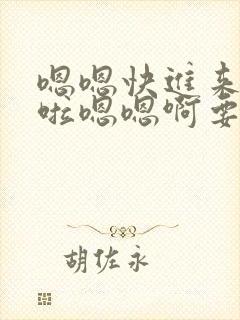 嗯嗯快进来
啦嗯嗯啊要
胡佐永